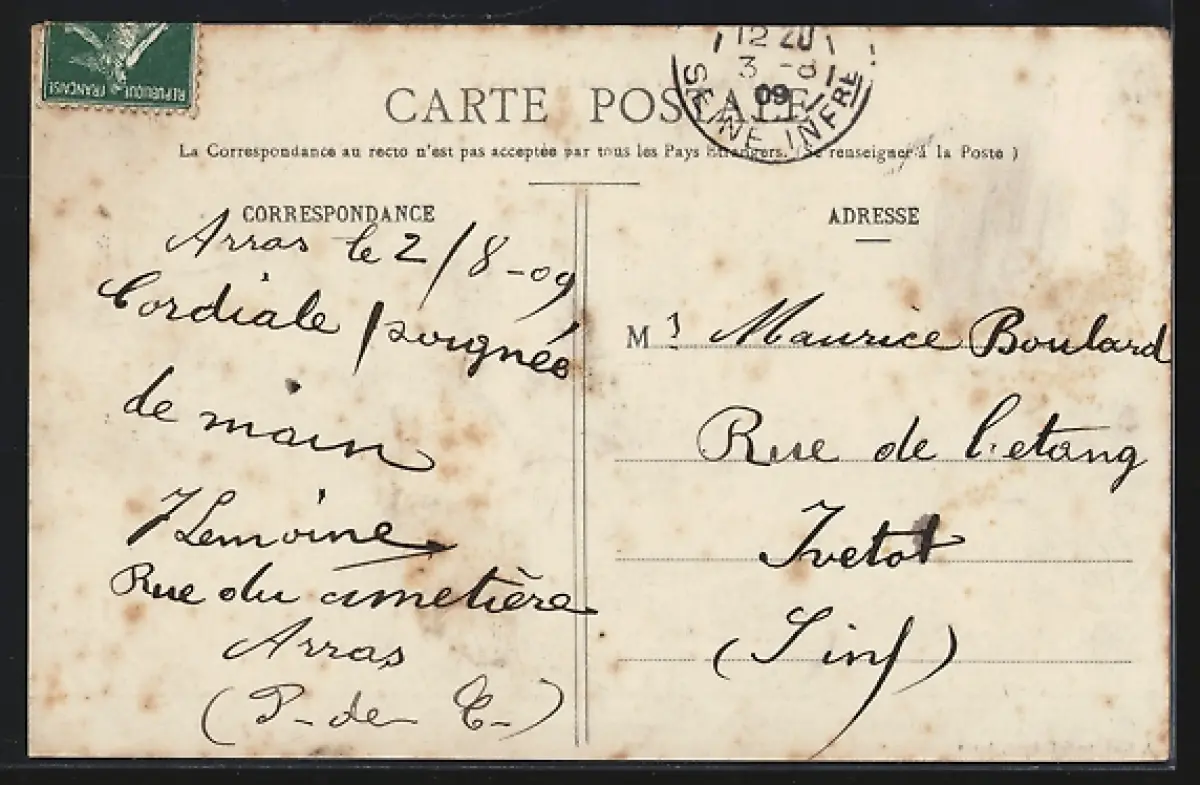 RÉPUBLIQUE FRANÇAISE
12 20
3 - 8
09
SEINE INFRE
CARTE POSTALE
La Correspondance au recto n'est pas acceptée par tous les Pays Etrangers. (Se renseigner à la Poste )
CORRESPONDANCE
Arras le 2/8-09
Cordiale poignée
de main
Lemoine
Rue du cimetière
Arras
(P-de C-)
ADRESSE
Mr Maurice Boulard
Rue de l'etang
Yvetot
(S inf)